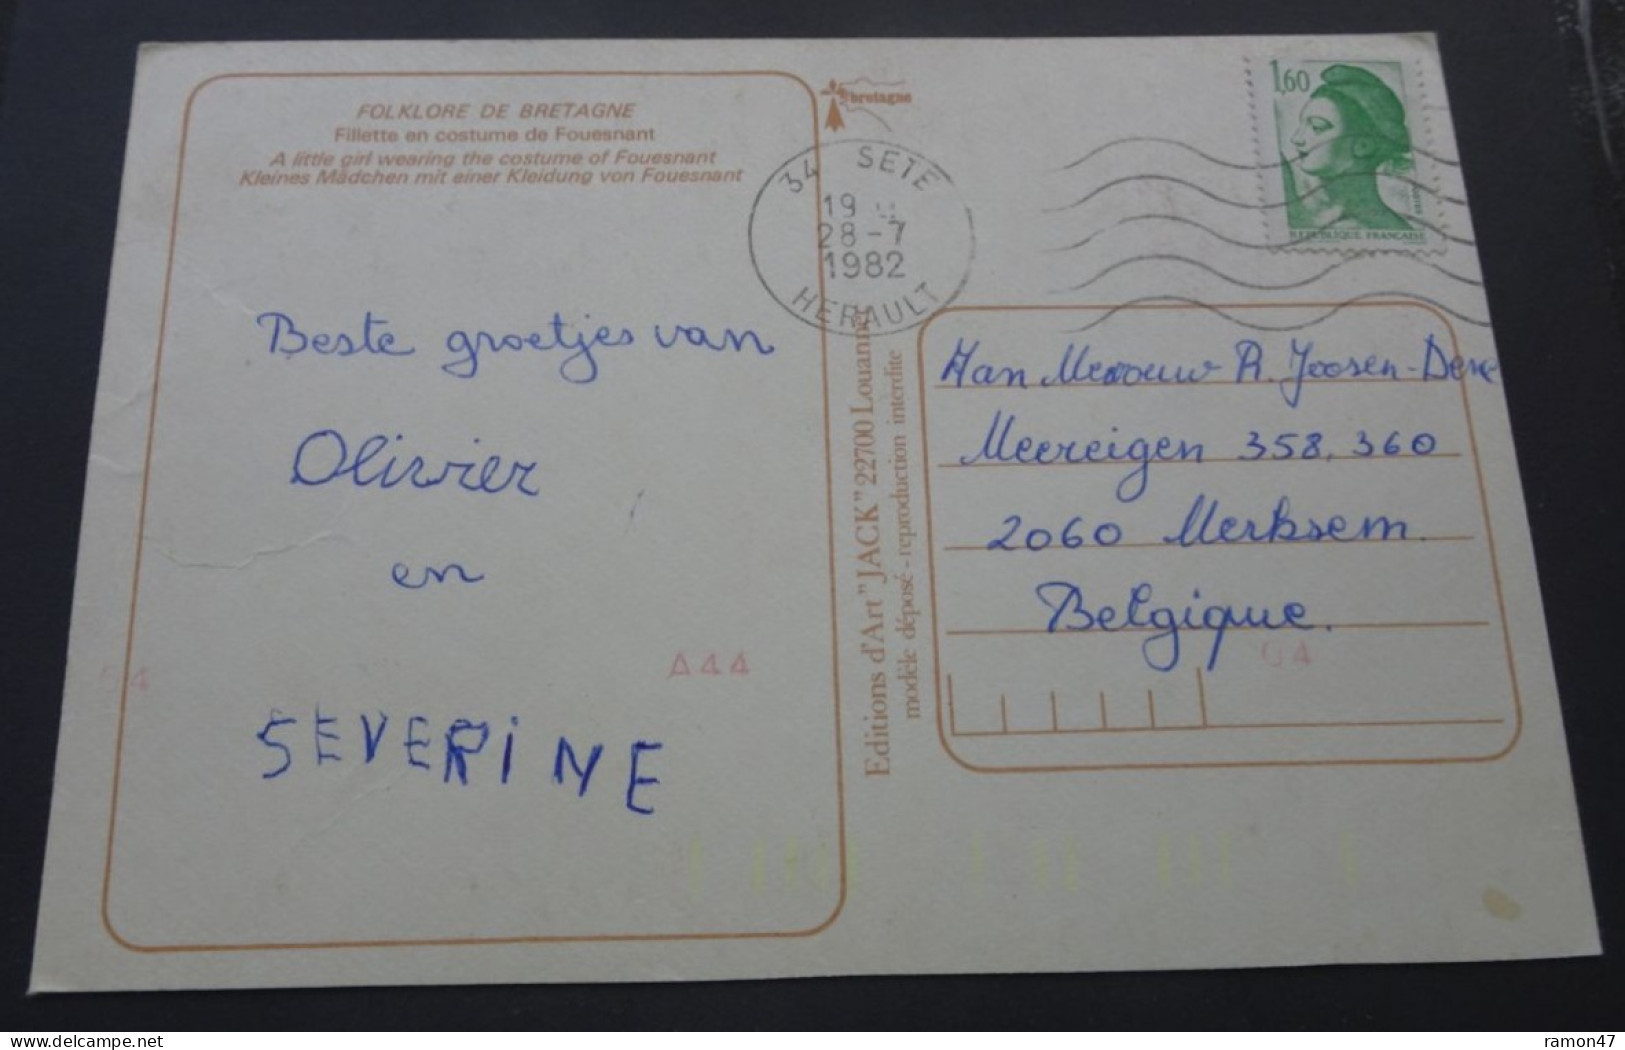 FOLKLORE DE BRETAGNE
Fillette en costume de Fouesnant
A little girl wearing the costume of Fouesnant
Kleines Mädchen mit einer Kleidung von Fouesnant
bretagne
34 SETE
19
28-7
1982
HERAULT
1,60
REPUBLIQUE FRANCAISE
Beste groetjes van
Olivier
en
SEVERINE
A44
Editions d'Art "JACK" 22700 Louannec
modèle déposé - reproduction interdite
Aan Mevrouw R. Joosen-
Meereigen 358, 360
2060 Merksem.
Belgique.
04
ramon47